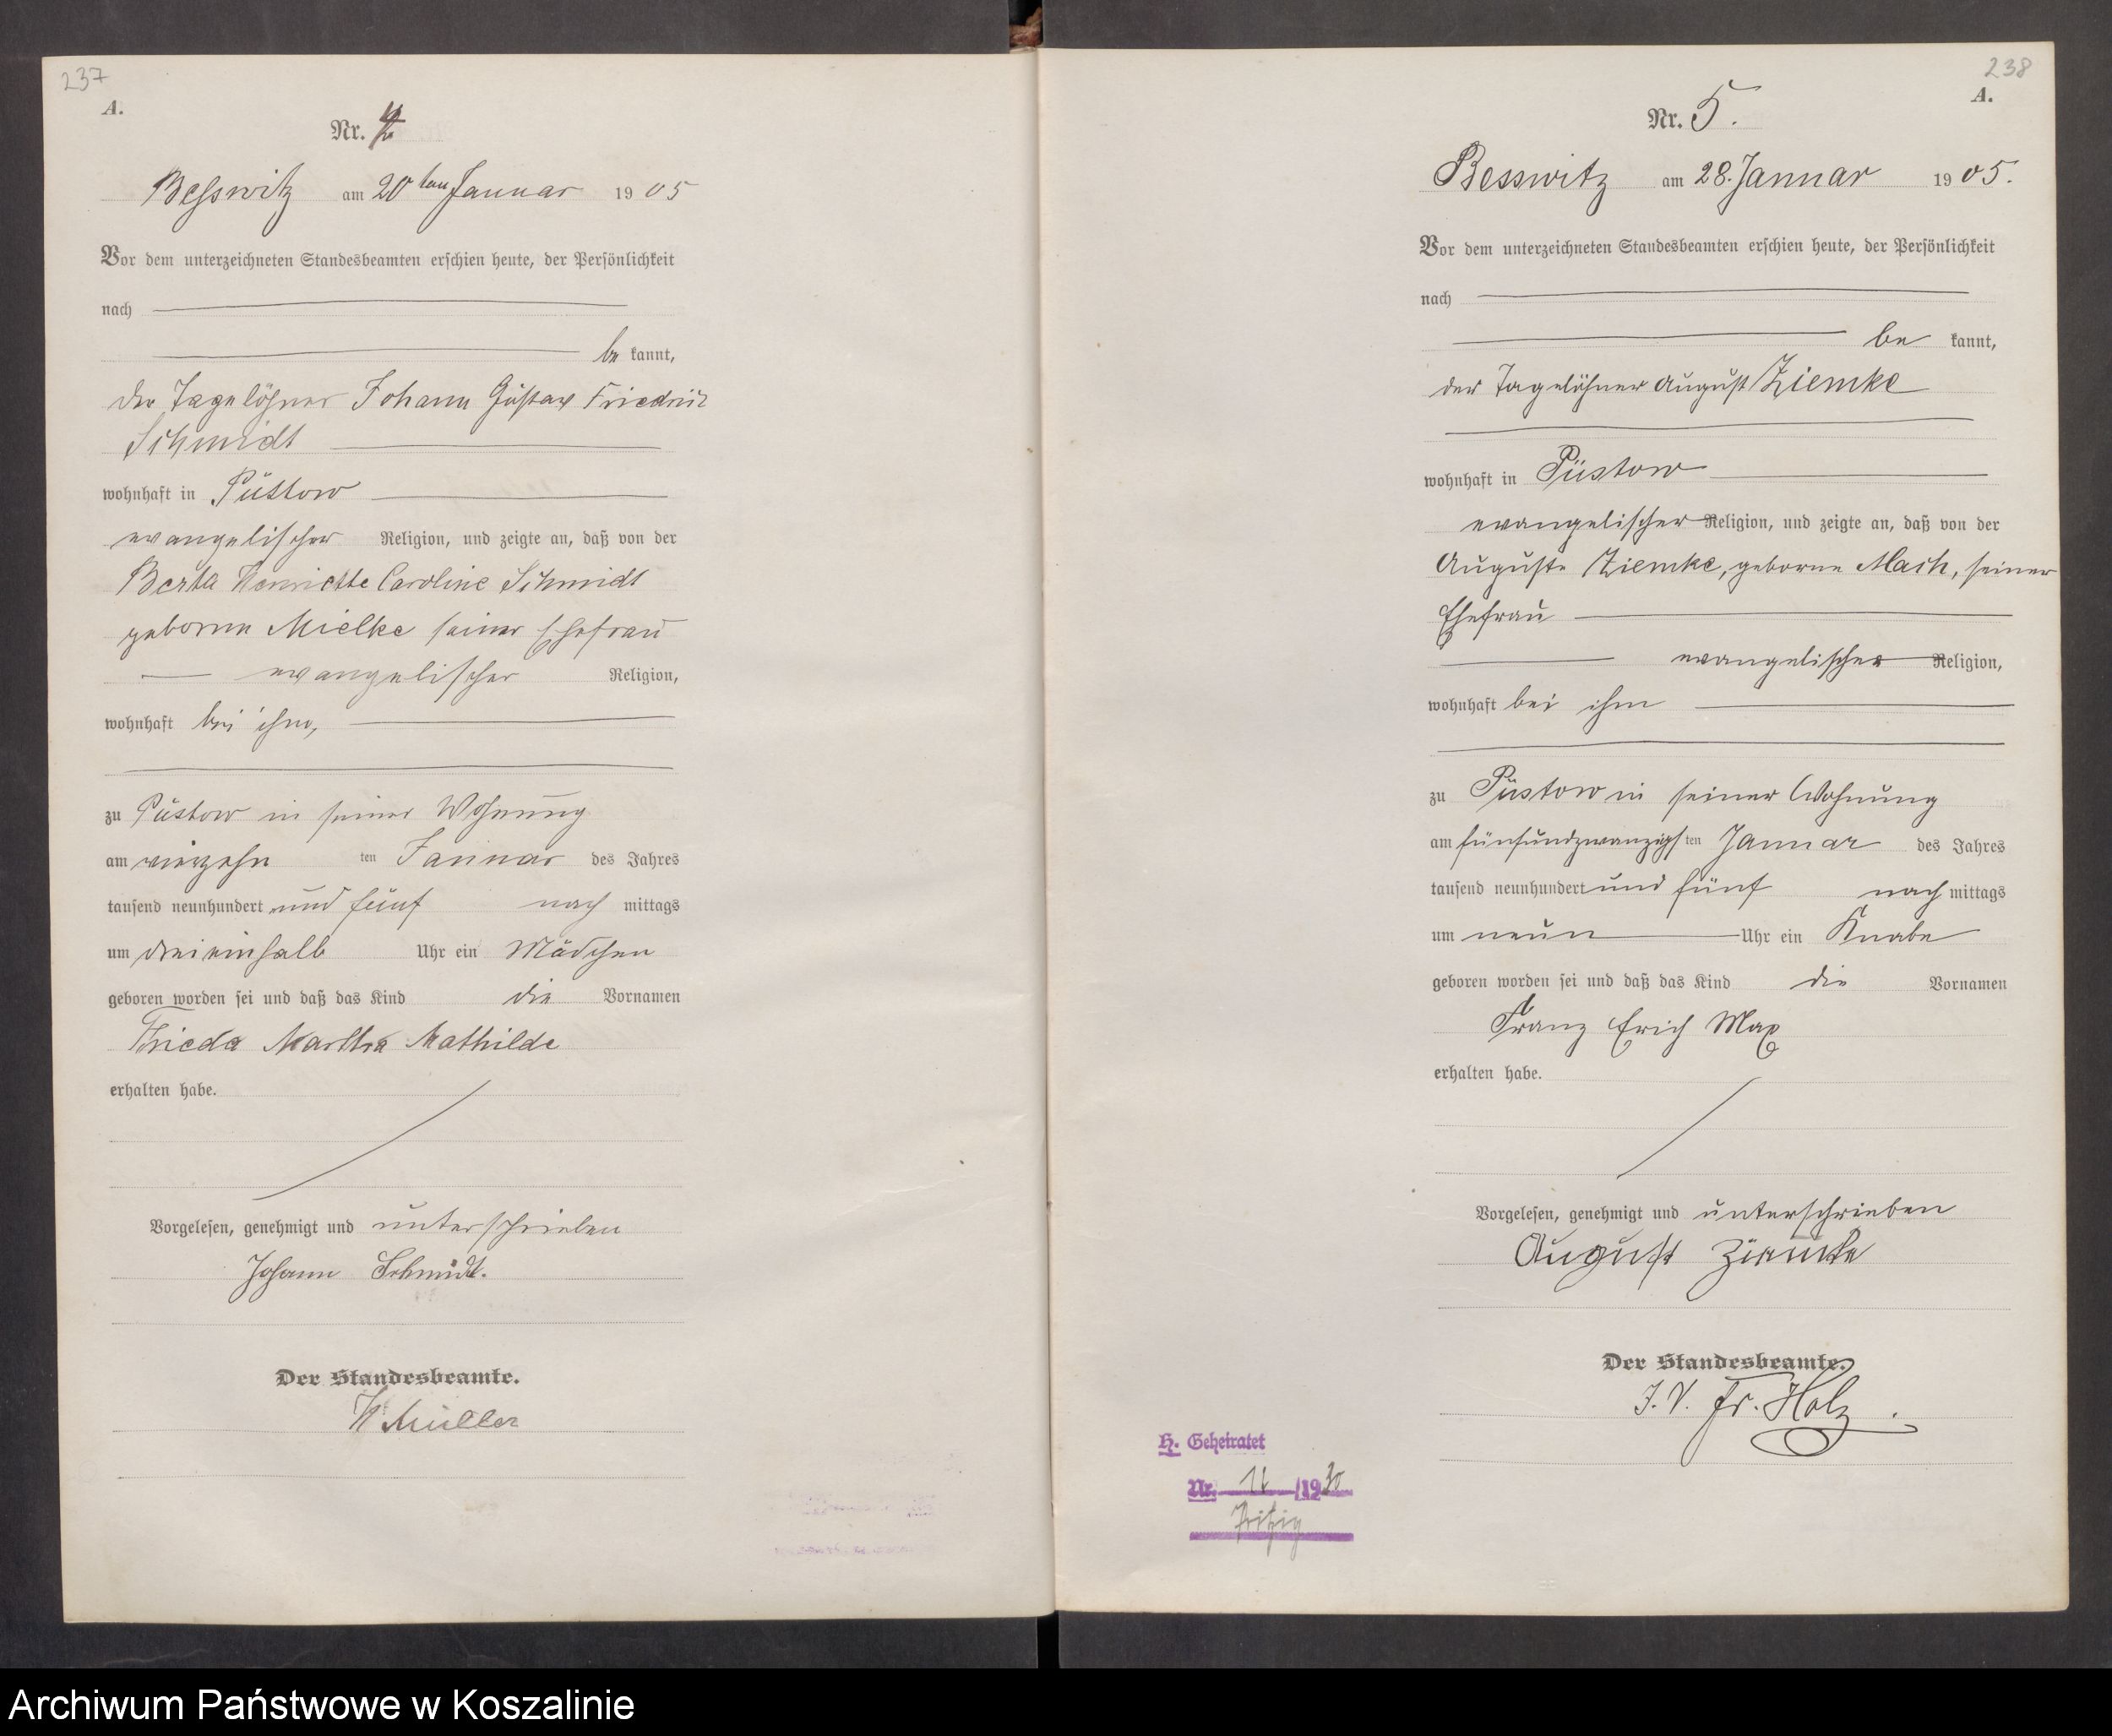 237
A.
Nr. 4
Besswitz am 20ten Januar 1905
Vor dem unterzeichneten Standesbeamten erschien heute, der Persönlichkeit
nach
be kannt,
der Tagelöhner Johann Gustav Friedrich
Schmidt
wohnhaft in Püstow
evangelischer Religion, und zeigte an, daß von der
Berta Henriette Caroline Schmidt
geborne Mielke seiner Ehefrau
evangelischer Religion,
wohnhaft bei ihm,
zu Püstow in seiner Wohnung
am vierzehn ten Januar des Jahres
tausend neunhundert und fünf nach mittags
um dreieinhalb Uhr ein Mädchen
geboren worden sei und daß das Kind die Vornamen
Frieda Martha Mathilde
erhalten habe.
Vorgelesen, genehmigt und unterschrieben
Johann Schmidt.
Der Standesbeamte.
Müller
238
A.
Nr. 5.
Besswitz am 28. Januar 1905.
Vor dem unterzeichneten Standesbeamten erschien heute, der Persönlichkeit
nach
be kannt,
der Tagelöhner August Ziemke
wohnhaft in Püstow
evangelischer Religion, und zeigte an, daß von der
Auguste Ziemke, geborne Mach, seiner
Ehefrau
evangelischer Religion,
wohnhaft bei ihm
zu Püstow in seiner Wohnung
am fünfundzwanzigsten Januar des Jahres
tausend neunhundert und fünf nach mittags
um neun Uhr ein Knabe
geboren worden sei und daß das Kind die Vornamen
Franz Erich Max
erhalten habe.
Vorgelesen, genehmigt und unterschrieben
August Ziemke
Der Standesbeamte.
J. V. Fr. Holz.
H. Geheiratet
Nr. 11 /1930
Archiwum Państwowe w Koszalinie